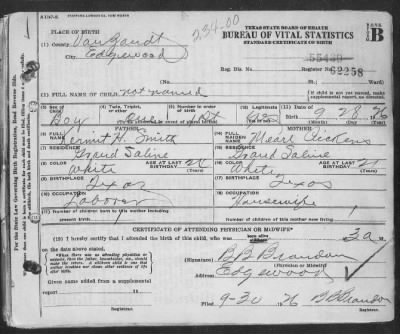 TEXAS STATE BOARD OF HEALTH
BUREAU OF VITAL STATISTICS
STANDARD CERTIFICATE OF BIRTH
B
234-00
PLACE OF BIRTH
(1) County Van Zandt
City Edgewood
55430
Reg. Dis. No. Register No. 62258
Ward)
(2) FULL NAME OF CHILD not named
If child is not yet named, make supplemental report, as directed.
(3) Sex of Child Boy
(4) Twin, Triplet, or other?
(5) Number in order of birth 1st
(6) Legitimate yes
(7) Date of Birth 9 28 1926
FATHER
MOTHER
FULL NAME Kermit H. Smith
(14) FULL MAIDEN NAME Mearl
RESIDENCE Grand Saline
RESIDENCE Grand Saline
COLOR White AGE AT LAST BIRTHDAY 21 (Years)
COLOR White AGE AT LAST BIRTHDAY 21 (Years)
BIRTHPLACE Texas
(17) BIRTHPLACE Texas
OCCUPATION Laborer
(18) OCCUPATION Housewife
Number of children born to this mother including present birth 1
Number of children of this mother now living 1
CERTIFICATE OF ATTENDING PHYSICIAN OR MIDWIFE
I hereby certify that I attended the birth of this child, who was born alive at 3 a M.
on the date above stated.
When there was no attending physician or midwife, then the father, householder, etc., should make this return.
(Signature) B B Brandon
(Physician or Midwife)
Address Edgewood
Given name added from a supplemental
report 19
Registrar.
Filed 9-30 1926 B B Brandon
Registrar.